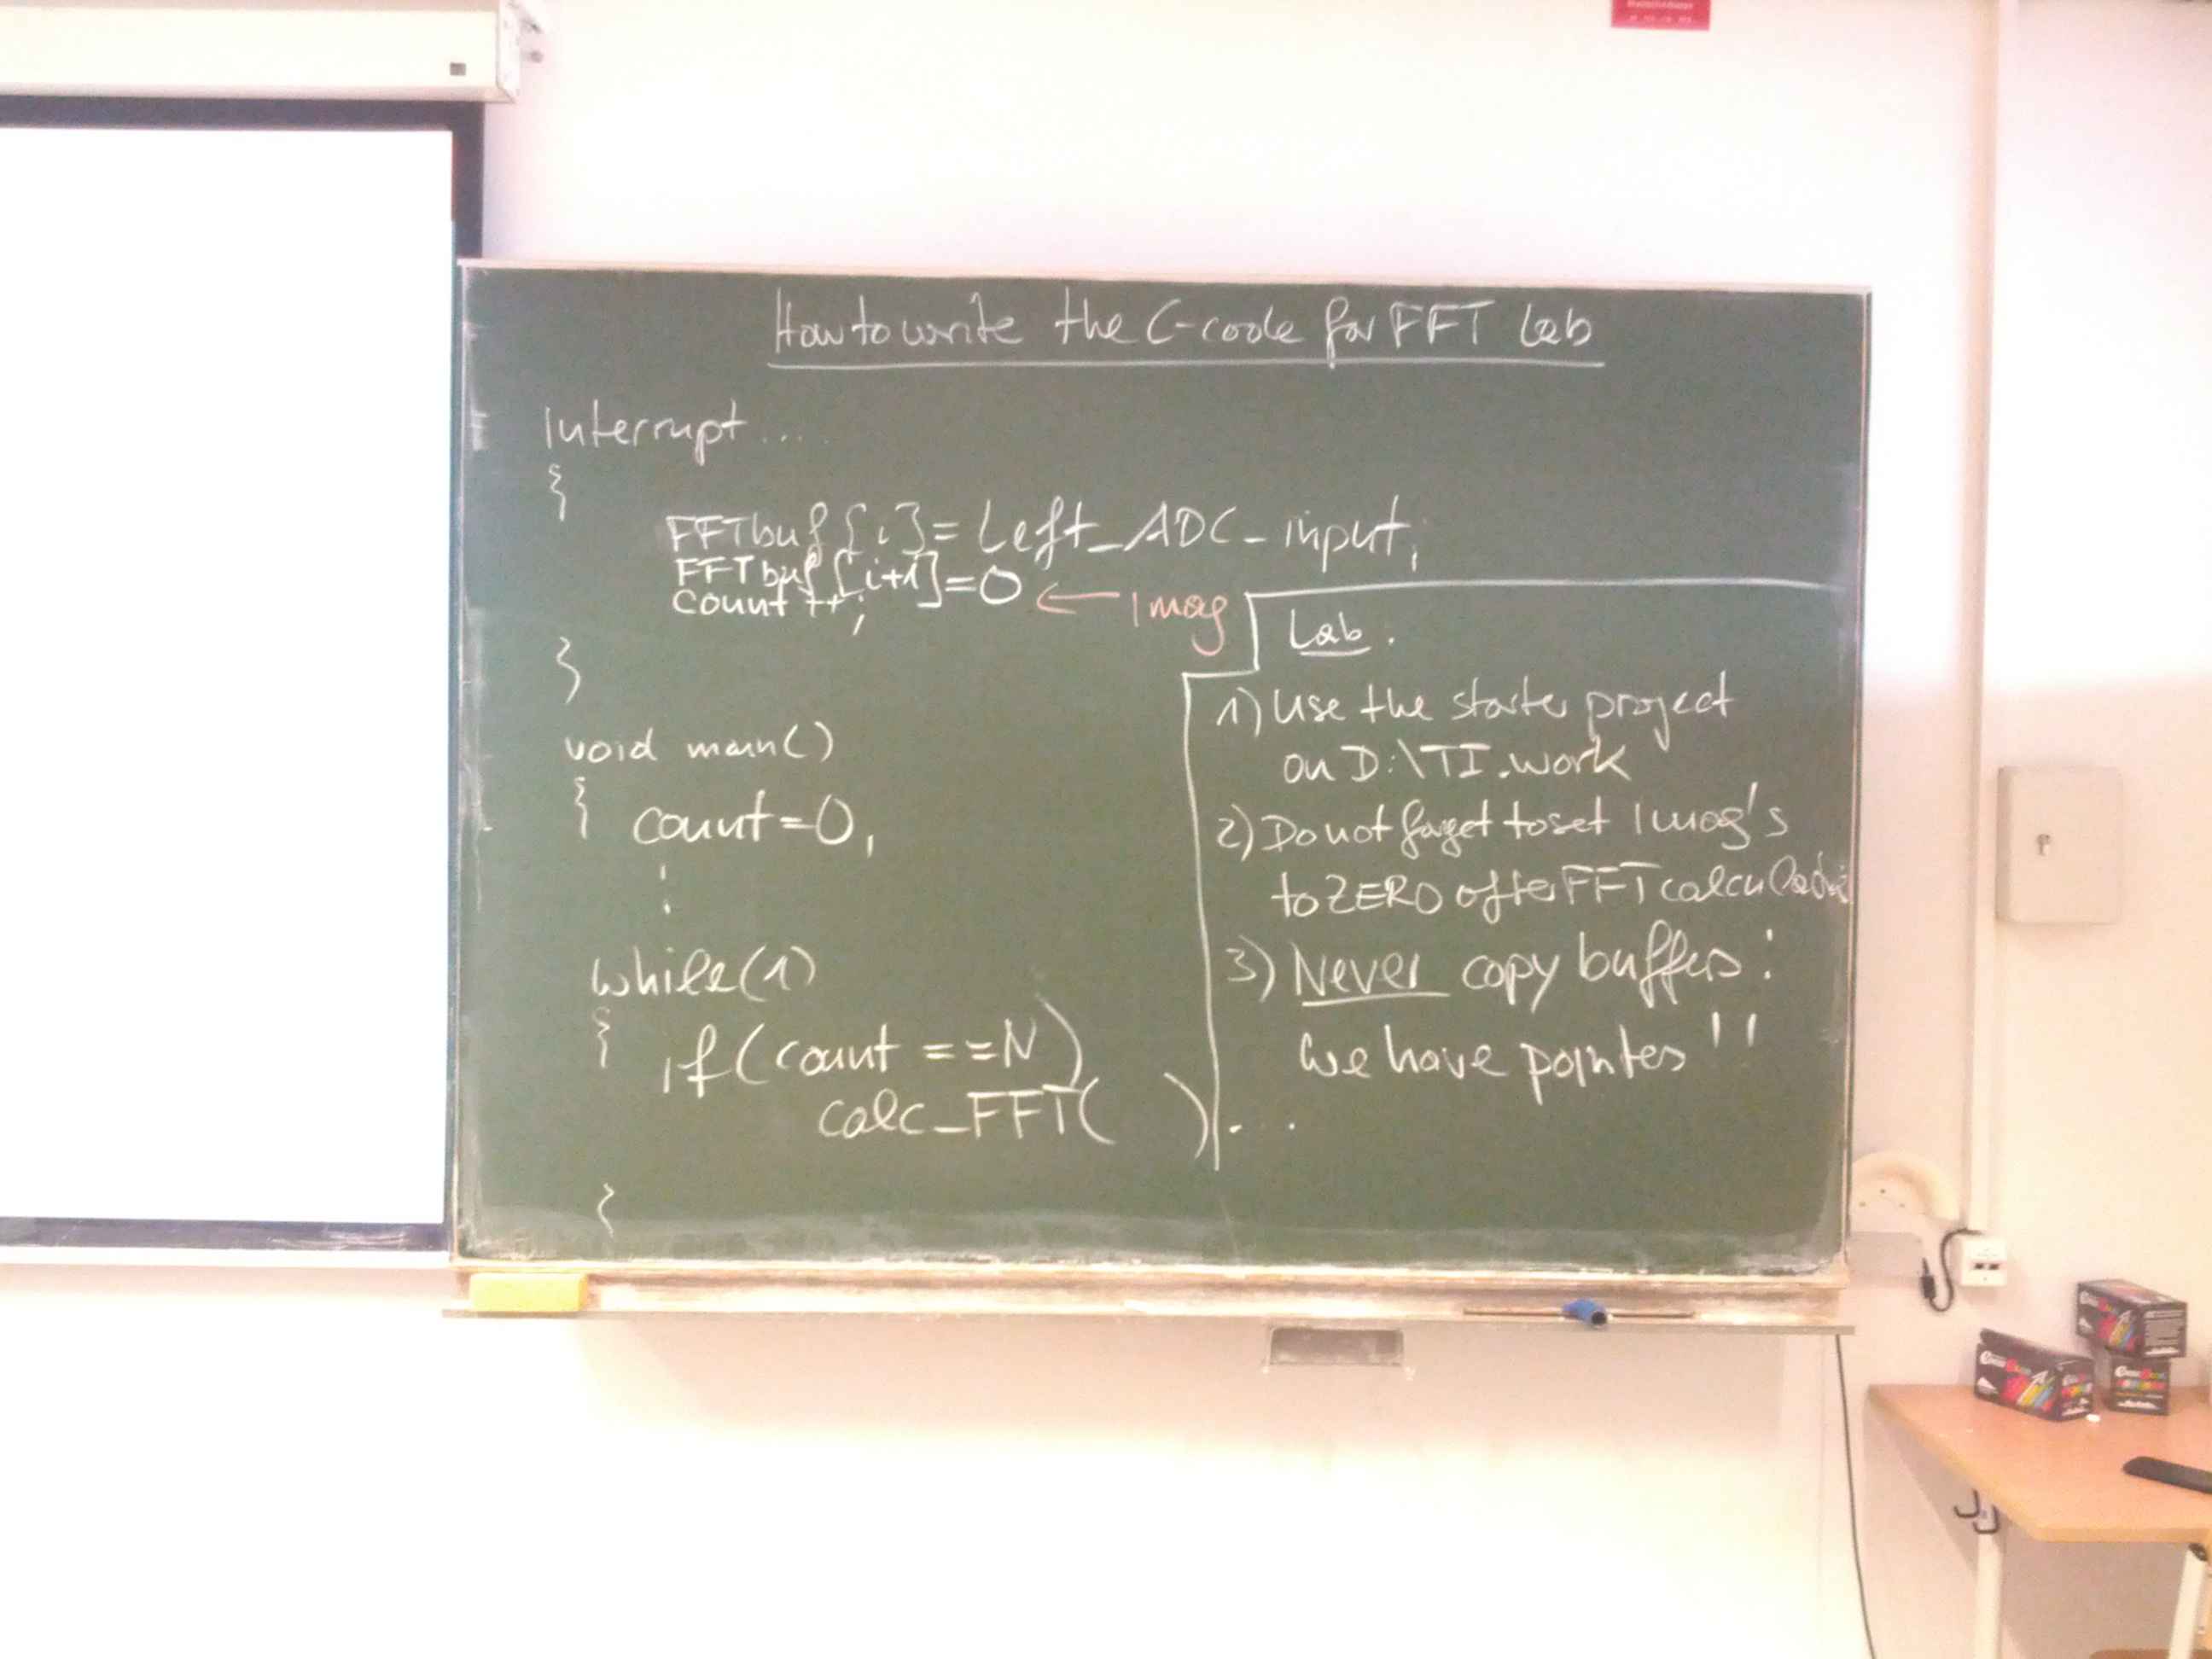 How to write the C-code for FFT Lab
Interrupt ....
{
FFTbuf[i]= Left_ADC_input;
FFTbuf[i+1]=0 ← Imag
count ++;
}
void main()
{ count=0;
:
while(1)
{ if(count ==N)
calc_FFT( )...
}
Lab.
1) Use the starter project
on D:\TI.work
2) Do not forget to set Imag's
to ZERO after FFT calculation
3) Never copy buffers:
we have pointers!!